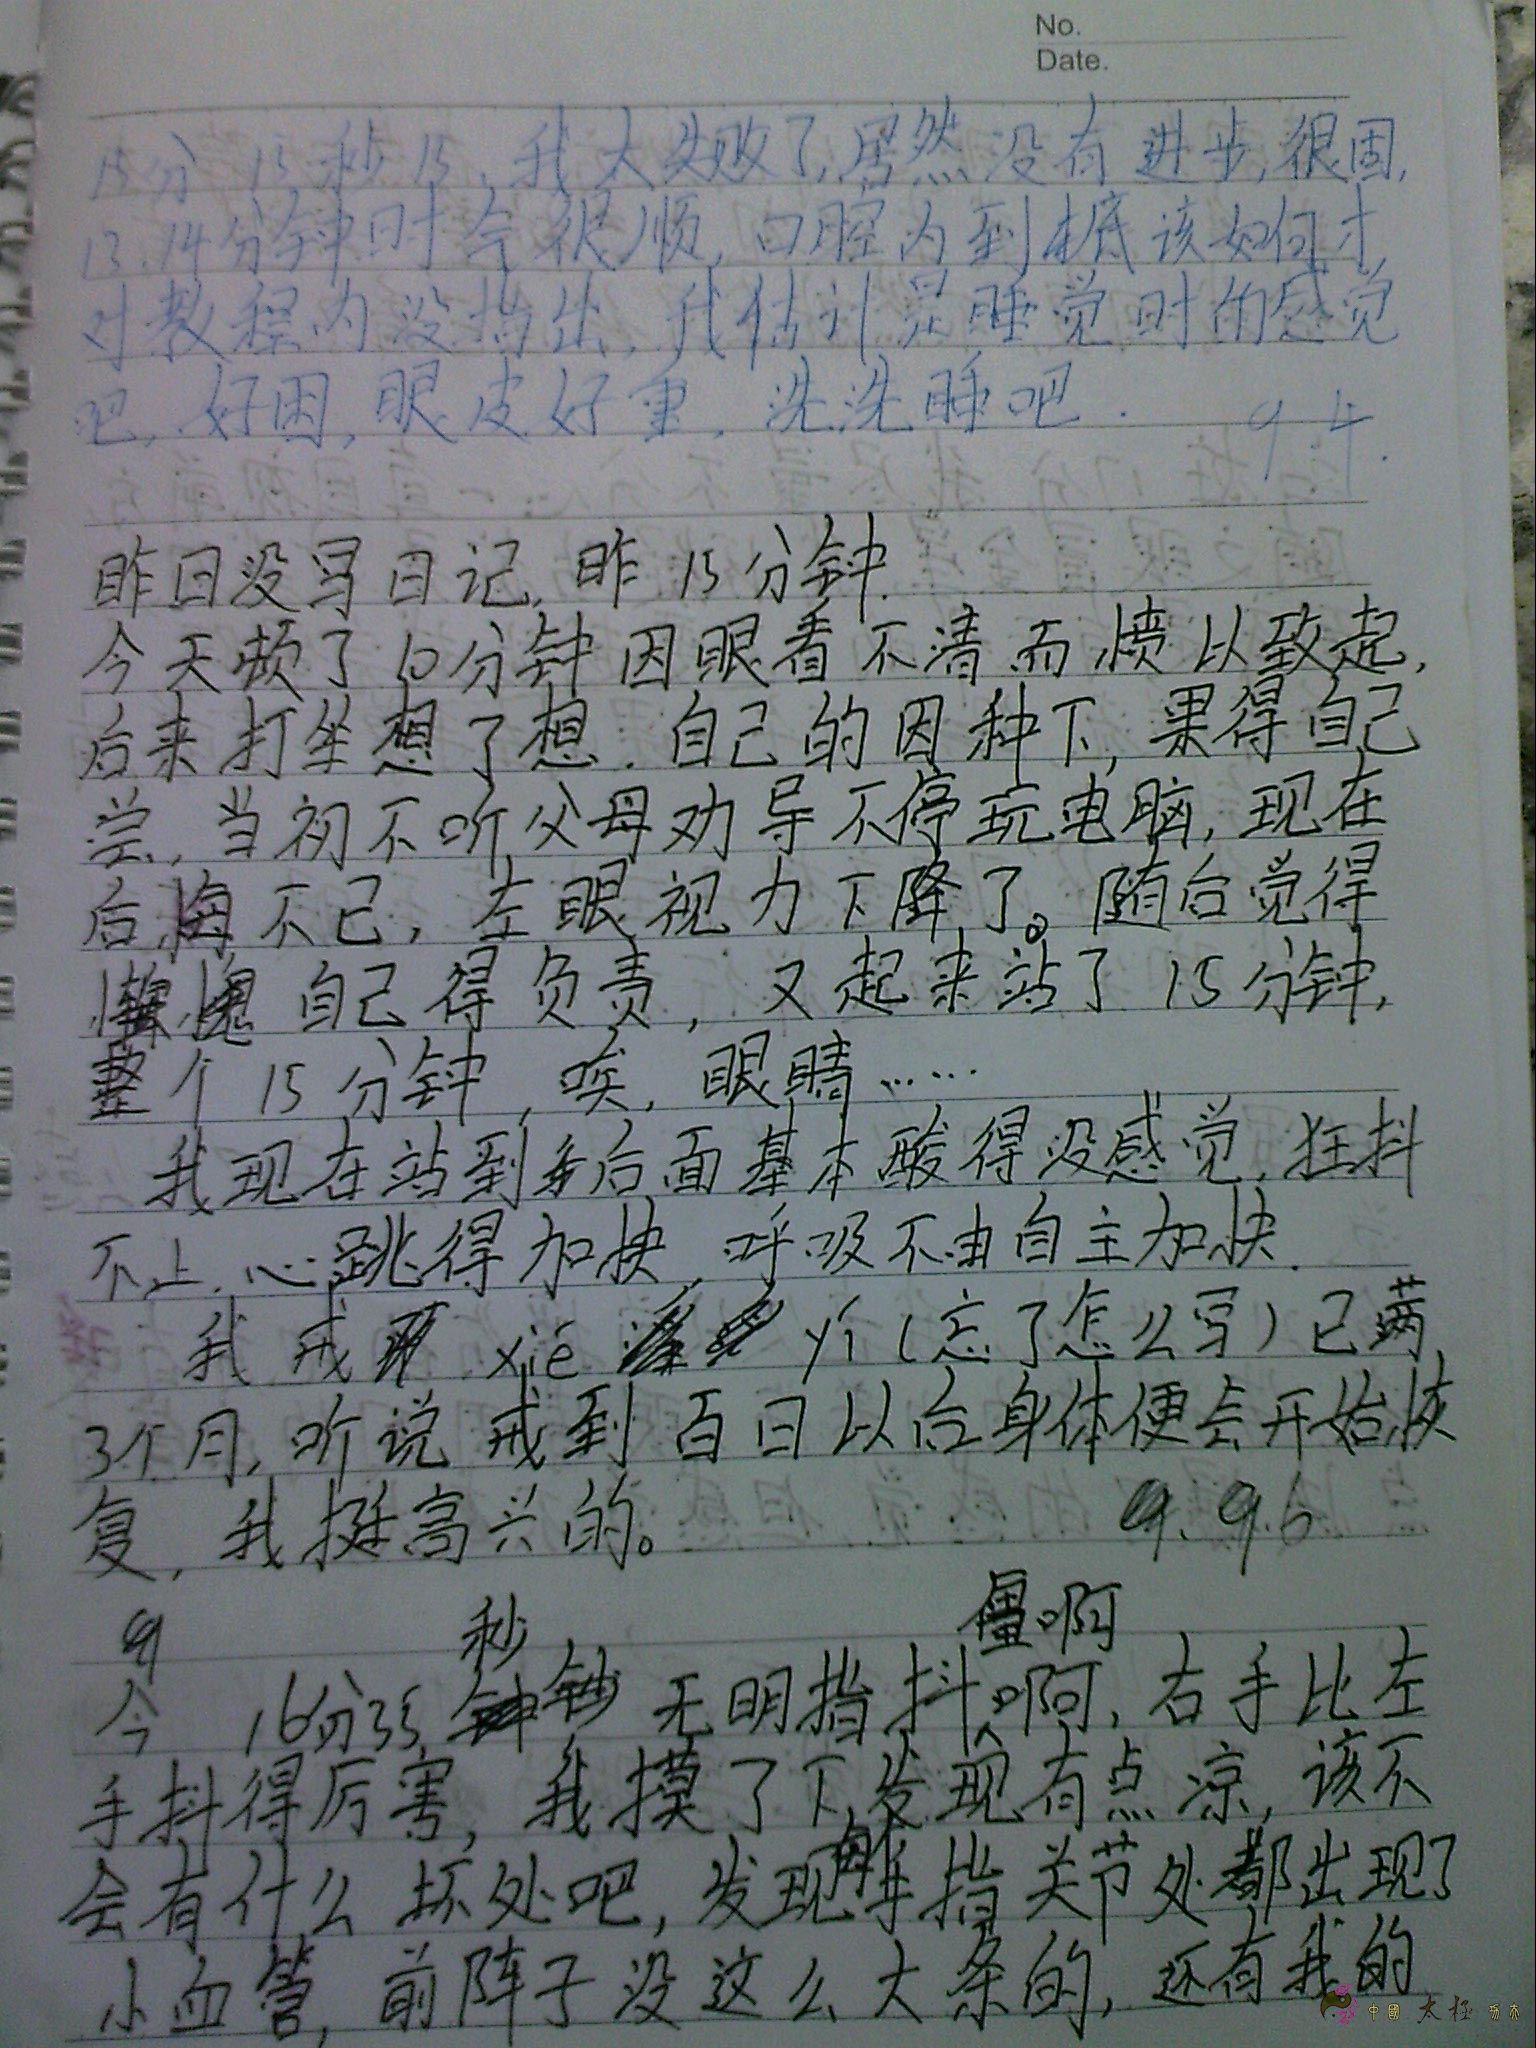 No.
Date.
15分 15秒15, 我太失败了,居然没有进步,很困,
13.14分钟时会很顺,口腔内到底该如何才
对教程内没指出,我估计是睡觉时的感觉
吧,好困,眼皮好重,洗洗睡吧.
9.4.
昨日没写日记,昨15分钟.
今天顿了10分钟因眼看不清而愤以致起,
后来打坐想了想.自己的因种下,果得自己
尝,当初不听父母劝导不停玩电脑,现在
后悔不已,左眼视力下降了。随后觉得
自己得负责,又起来站了15分钟,
整个15分钟,唉,眼睛……
我现在站到后面基本酸得没感觉,狂抖
不止,心跳得加快,呼吸不由自主加快.
我戒 xié yí(忘了怎么写)已满
3个月,听说戒到百日以后身体便会开始恢
复,我挺高兴的。 9.6
秒 僵啊
今 16分35 无明指抖啊,右手比左
手抖得厉害,我摸了下发现有点凉,该不
会有什么坏处吧,发现每手指关节处都出现了
小血管,前阵子没这么大条的,还有我的
中國太極